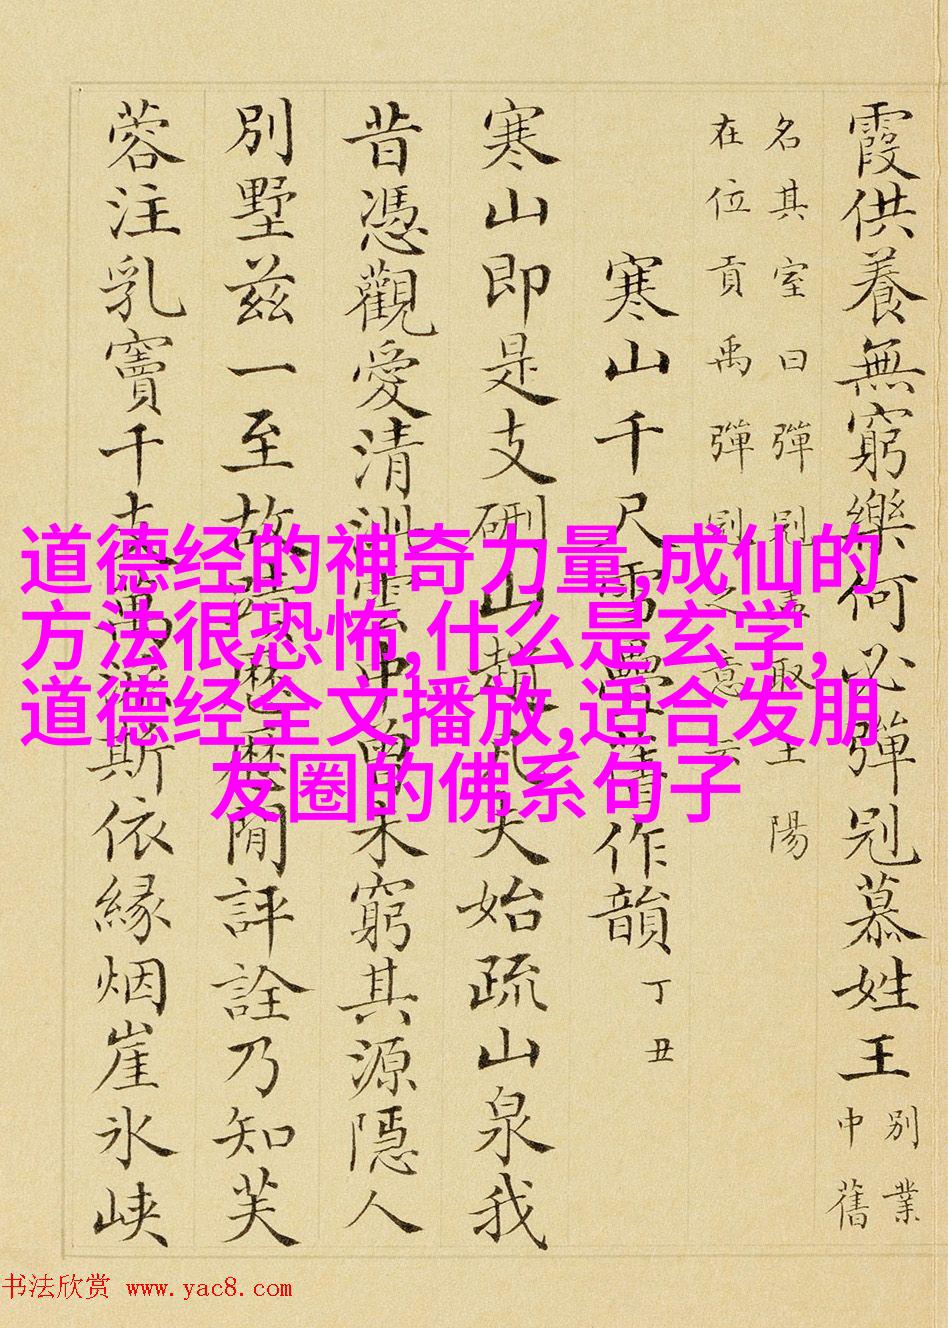 霞供養無窮樂何必彈冠慕姓王
別業
中舊
名其室曰彈冠盖取王陽
在位貢禹彈冠之意云
寒山千尺雪疊舊作韻
丁丑
寒山即是支硎山趙凡夫始疏山泉我
昔憑觀愛清中曾未窮其源隱人
別墅兹一至故蹟歷歷閒評詮乃知芙
蓉注乳竇千斯依緣烟崖氷峡
道德经的神奇力量,成仙的
方法很恐怖,什么是玄学,
道德经全文播放,适合发朋
友圈的佛系句子
书法欣赏 www.yac8.com